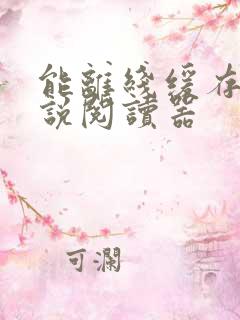 能離綫緩存
說閱讀器
可瀾